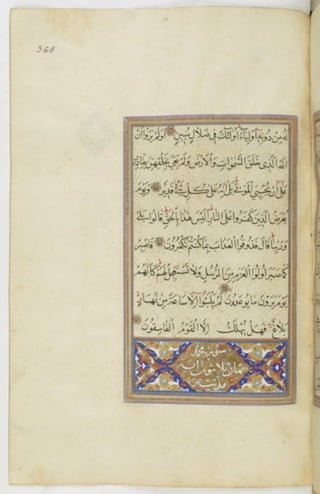 368
له من دونه اولياء اولئك في ضلال مبين اولم يروا ان
الله الذي خلق السموات والارض ولم يعي بخلقهن بقادر
على ان يحيي الموتى بلى انه على كل شيء قدير ويوم
يعرض الذين كفروا على النار اليس هذا بالحق قالوا بلى
وربنا قال فذوقوا العذاب بما كنتم تكفرون فاصبر
كما صبر اولوا العزم من الرسل ولا تستعجل لهم كانهم
يوم يرون ما يوعدون لم يلبثوا الا ساعة من نهار
بلاغ فهل يهلك الا القوم الفاسقون
سورة محمد
ثمان ثلاثون آية
مدنية